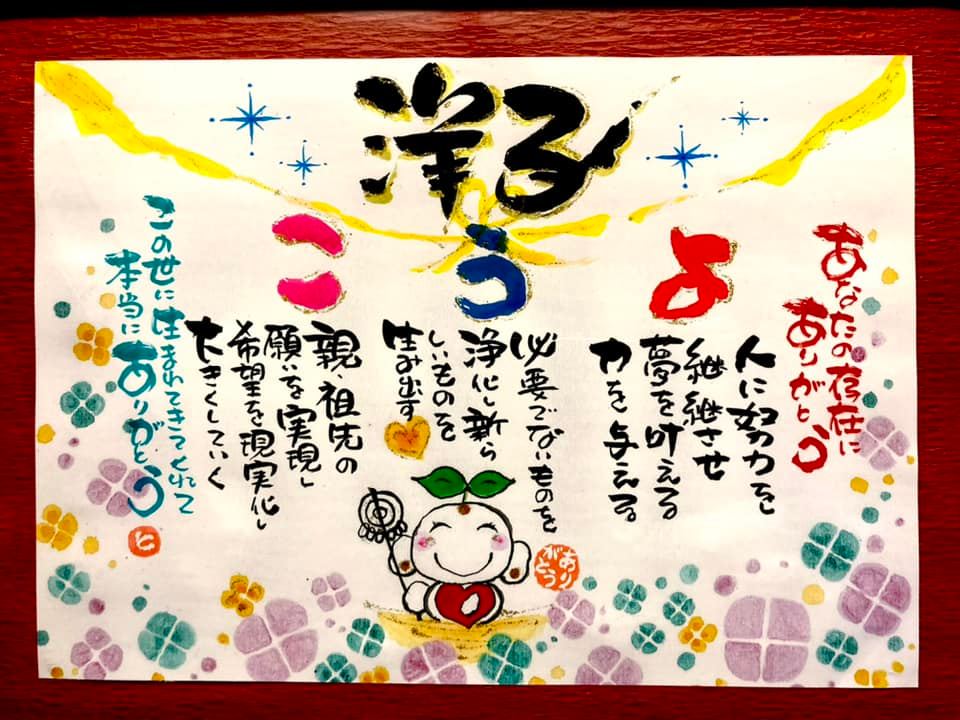 洋子
あなたの存在に
ありがとう
よ
人に努力を
継継させ
夢を叶える
力を与える
う
必要でないものを
浄化し新ら
しいものを
生み出す
こ
親・祖先の
願いを実現し
希望を現実化し
大きくしていく
この世に生まれてきてくれて
本当にありがとう
と
あり
がとう